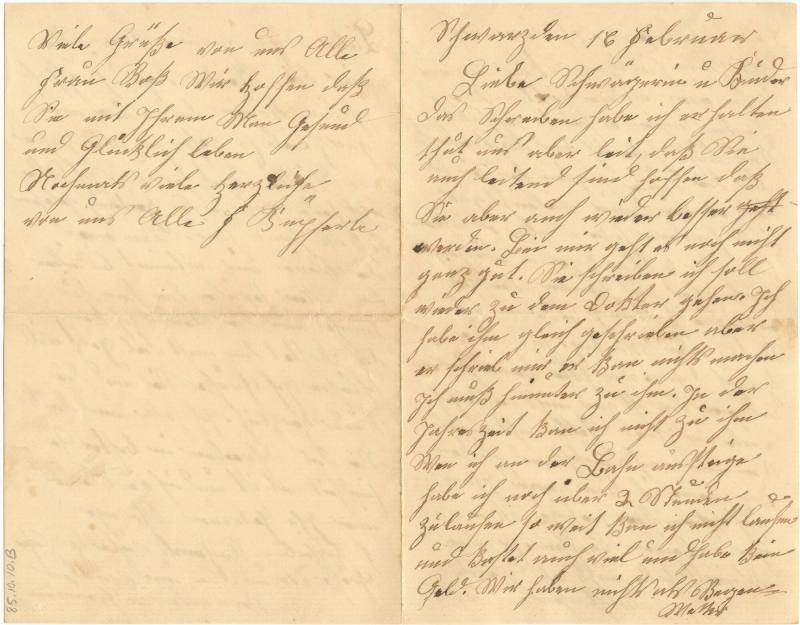 Viele Grüße von uns Alle
Frau Boß Wir hoffen daß
Sie mit Ihrem Man Gesund
und Glücklich leben
Nochmals viele herzliche
von uns Alle
Schwarzden 16 Februar
Liebe Schwägerin u Kinder
das Schreiben habe ich erhalten
thut uns aber leit, daß Sie
auch leitend sind hoffen daß
Sie aber auch wieder besser geht
werden. Bei mir geht es noch nicht
ganz gut. Sie schreiben ich soll
wieder zu dem Dokter gehen. Ich
habe ihm gleich geschrieben aber
er schrieb mir er kan nichts machen
Ich muß hinunter zu ihm. In der
Jahreszeit kan ich nicht zu ihm
Wen ich an der Bahn aussteige
habe ich noch über 2 Stunden
zulaufen so weit kan ich nicht laufen
und kostet auch viel und habe kein
Geld. Wir haben nichts als Regen=
Wetter
85.10.10.B